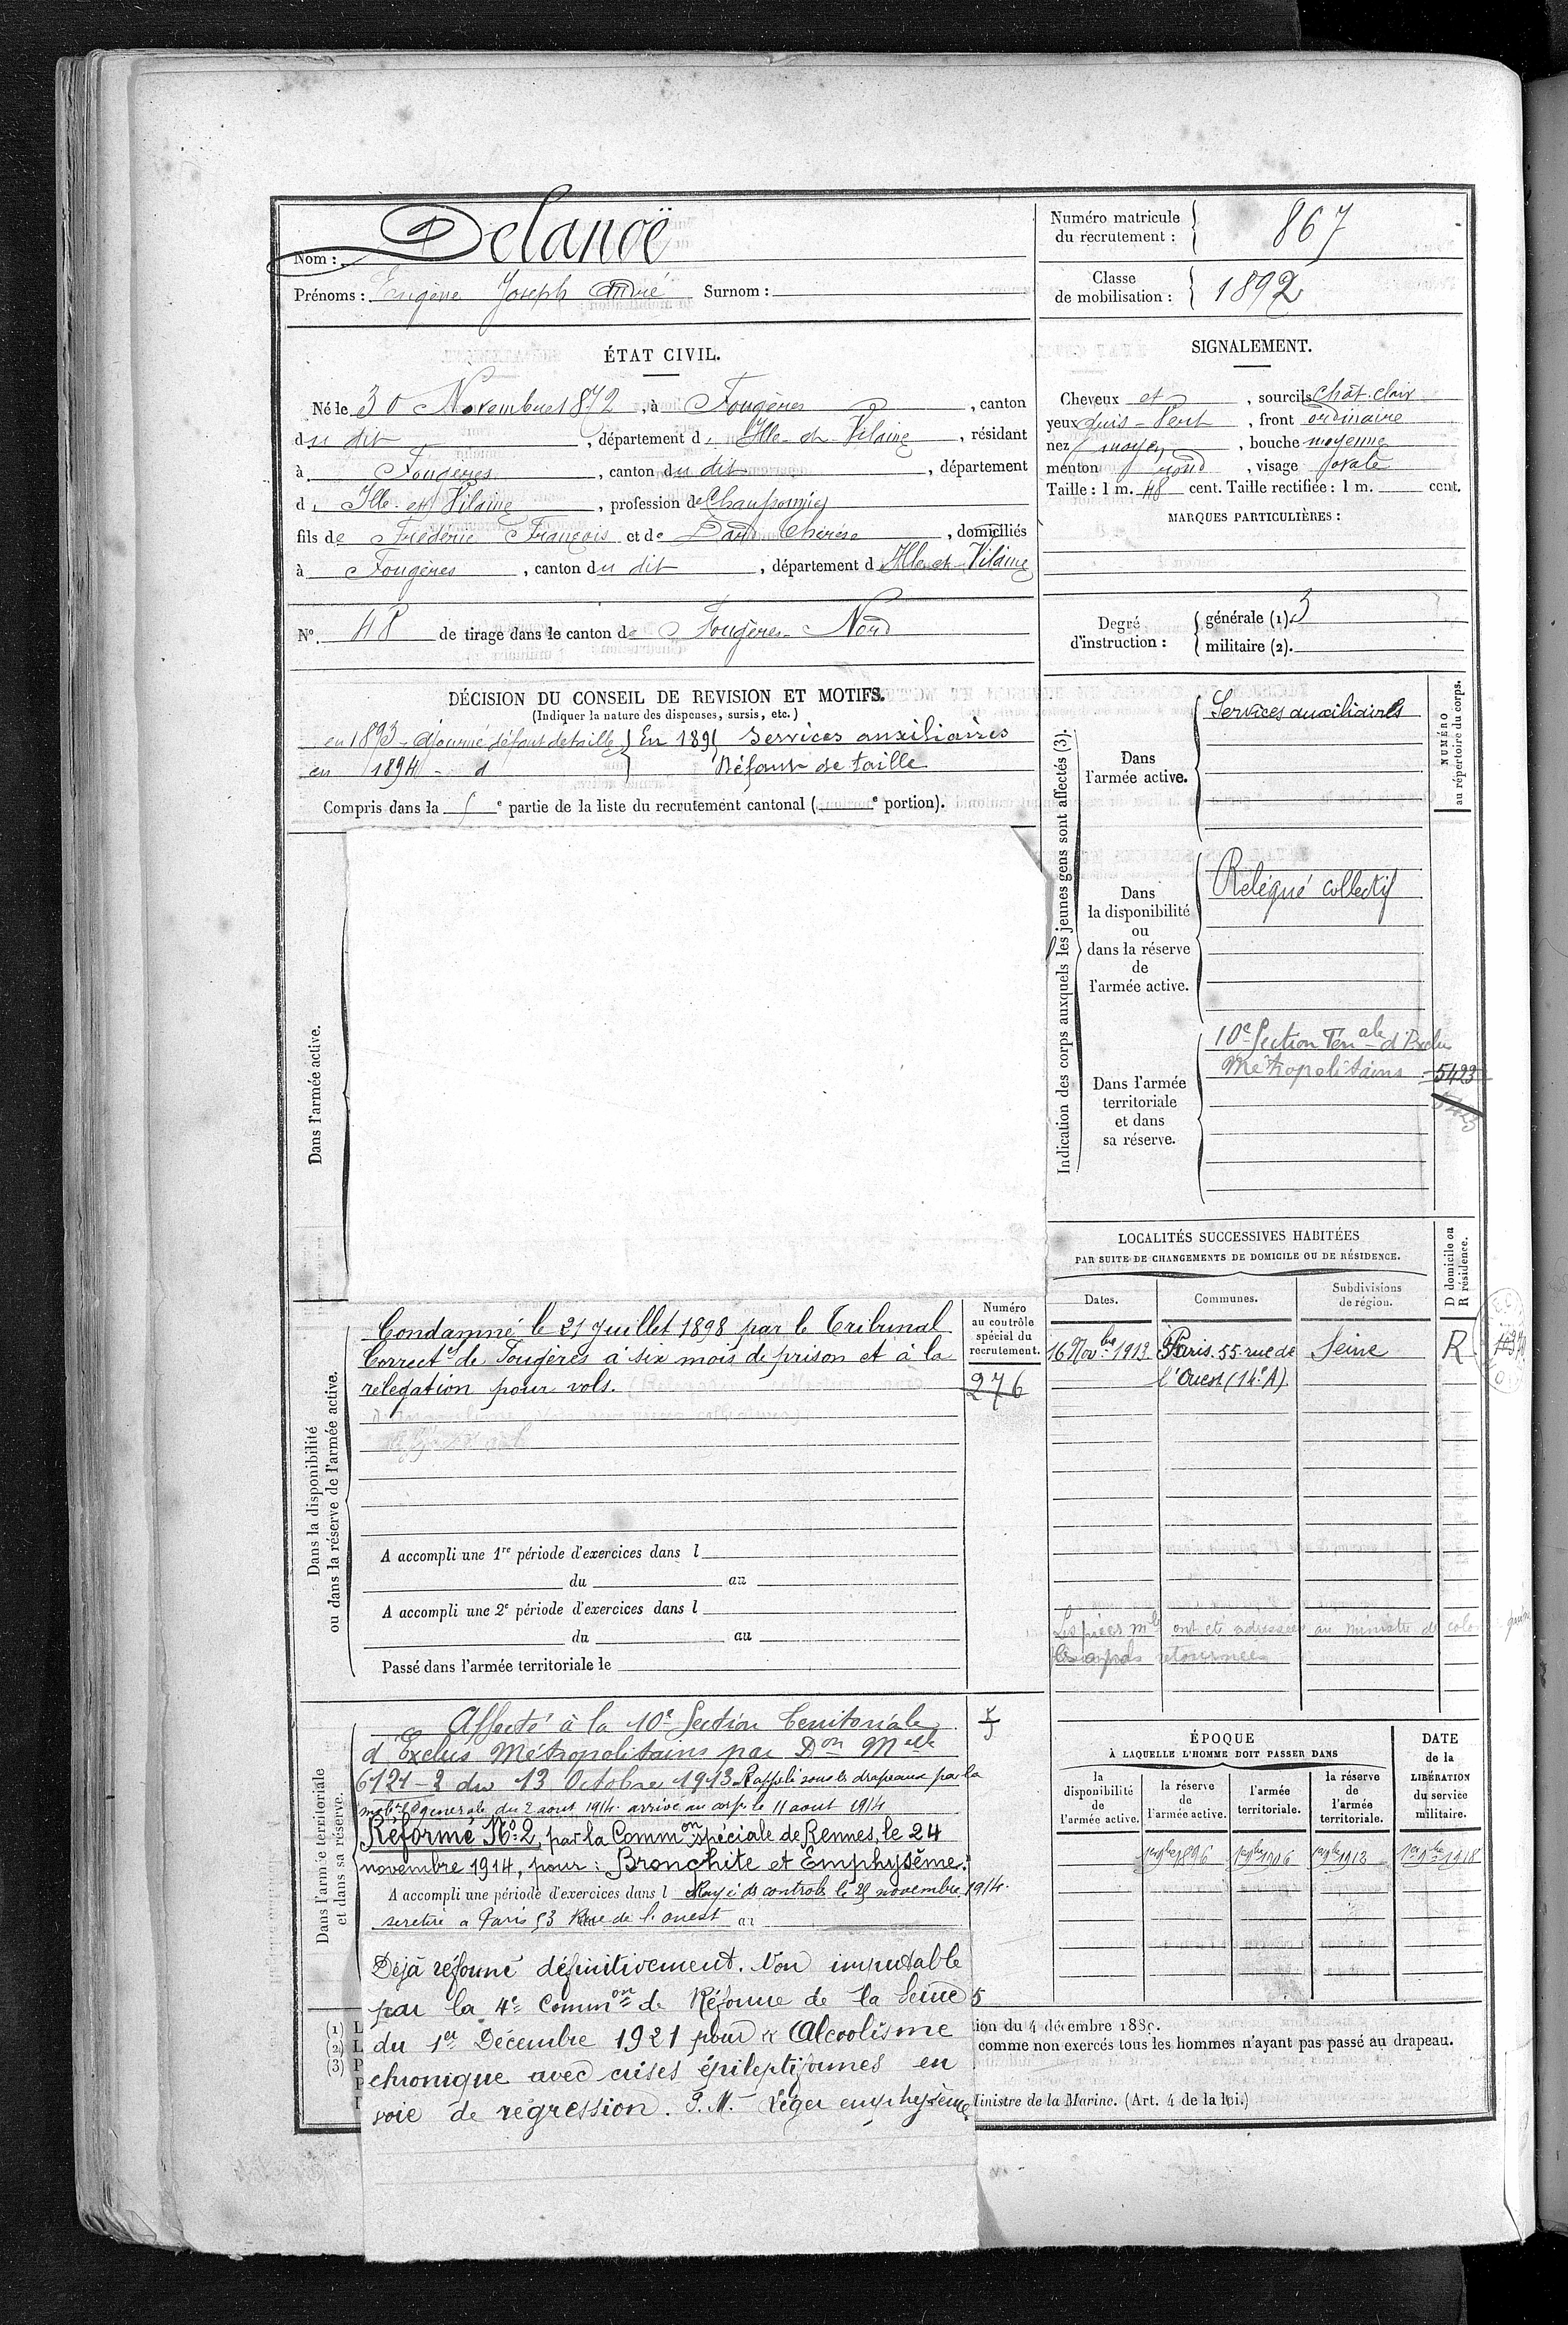 Nom : Delanoë
Prénoms : Eugène Joseph André Surnom :
Numéro matricule du recrutement : 867
Classe de mobilisation : 1892
ÉTAT CIVIL.
Né le 30 Novembre 1872, à Fougères, canton
du dit, département d'Ille-et-Vilaine, résidant
à Fougères, canton du dit, département
d'Ille-et-Vilaine, profession de
fils de Frédéric François et de Thérèse, domiciliés
à Fougères, canton du dit, département d'Ille-et-Vilaine
N° 48 de tirage dans le canton de Fougères-Nord
SIGNALEMENT.
Cheveux et, sourcils chât. clair
yeux gris-vert, front ordinaire
nez moyen, bouche moyenne
menton rond, visage ovale
Taille : 1 m. 48 cent. Taille rectifiée : 1 m. cent.
MARQUES PARTICULIÈRES :
Degré d'instruction : générale (1). 3
militaire (2).
DÉCISION DU CONSEIL DE REVISION ET MOTIFS.
(Indiquer la nature des dispenses, sursis, etc.)
en 1893 - ajourné défaut de taille } En 1895 Services auxiliaires
en 1894 - d } Défaut de taille
Compris dans la 5e partie de la liste du recrutement cantonal ( e portion).
Indication des corps auxquels les jeunes gens sont affectés (3).
NUMÉRO au répertoire du corps.
Dans l'armée active.
Services auxiliaires
Dans la disponibilité ou dans la réserve de l'armée active.
Relégué collectif
Dans l'armée territoriale et dans sa réserve.
10e Section Terr ale d'Exclus
Métropolitains 5423
Dans l'armée active.
LOCALITÉS SUCCESSIVES HABITÉES
PAR SUITE DE CHANGEMENTS DE DOMICILE OU DE RÉSIDENCE.
Dates. Communes. Subdivisions de région. D domicile ou R résidence.
16 Nov bre 1913 Paris. 55 rue de Seine R
l'Ouest (14e A)
Les pièces m les ont été adressées au ministre des colo
retournées
Dans la disponibilité ou dans la réserve de l'armée active.
Numéro au contrôle spécial du recrutement.
276
Condamné le 21 juillet 1898 par le Tribunal
Correct el de Fougères à six mois de prison et à la
relégation pour vols.
A accompli une 1re période d'exercices dans l
du au
A accompli une 2e période d'exercices dans l
du au
Passé dans l'armée territoriale le
Dans l'armée territoriale et dans sa réserve.
Affecté à la 10e Section Territoriale
d'Exclus Métropolitains par D on M elle
6121-2 du 13 Octobre 1913. Rappelé sous les drapeaux par la
mob on générale du 2 aout 1914 arrivé au corps le 11 aout 1914
Réformé N° 2, par la Comm on spéciale de Rennes, le 24
novembre 1914, pour : Bronchite et Emphysème.
A accompli une période d'exercices dans l Rayé des controles le 25 novembre 1914.
se retire a Paris 53 Rue de l'ouest au
Déjà réformé définitivement. Non imputable
par la 4e Comm on de Réforme de la Seine
du 1er Décembre 1921 pour « Alcoolisme
chronique avec crises épileptiformes en
voie de régression. P.M. Léger emphysème
ÉPOQUE
À LAQUELLE L'HOMME DOIT PASSER DANS
la disponibilité de l'armée active.
la réserve de l'armée active.
l'armée territoriale.
la réserve de l'armée territoriale.
DATE de la LIBÉRATION du service militaire.
1er 9bre 1896 1er 9bre 1906 1er 9bre 1912 1er 9bre 1918
(1) L
(2) L
(3) P
tion du 4 décembre 1889.
comme non exercés tous les hommes n'ayant pas passé au drapeau.
Ministre de la Marine. (Art. 4 de la loi.)